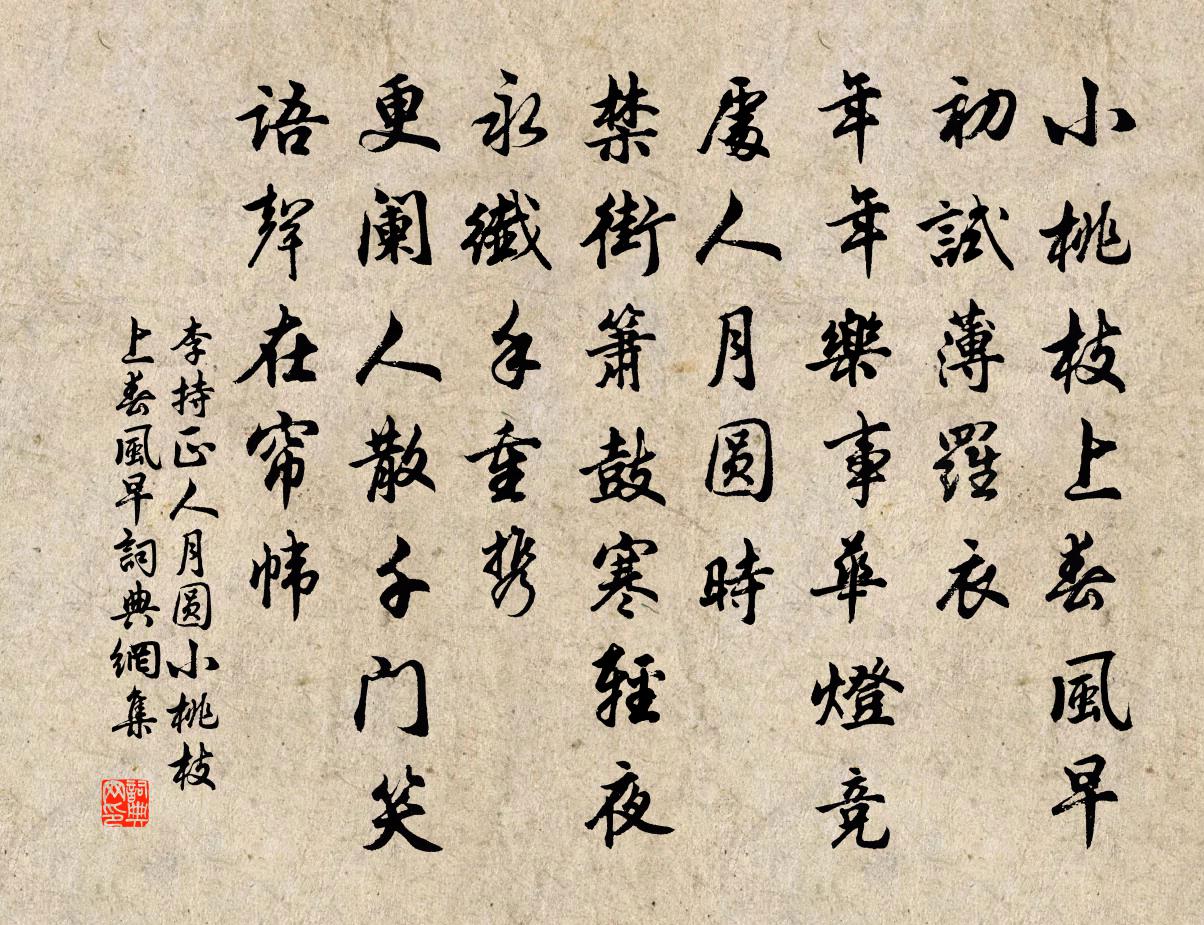 小桃枝上春風早
初試薄羅衣
年年樂事華燈竞
處人月圆時
禁街簫鼓寒輕夜
永纖手重携
更阑人散千门笑
語聲在帘帏
李持正人月圆小桃枝
上春風早詞典網集
詞典
网印